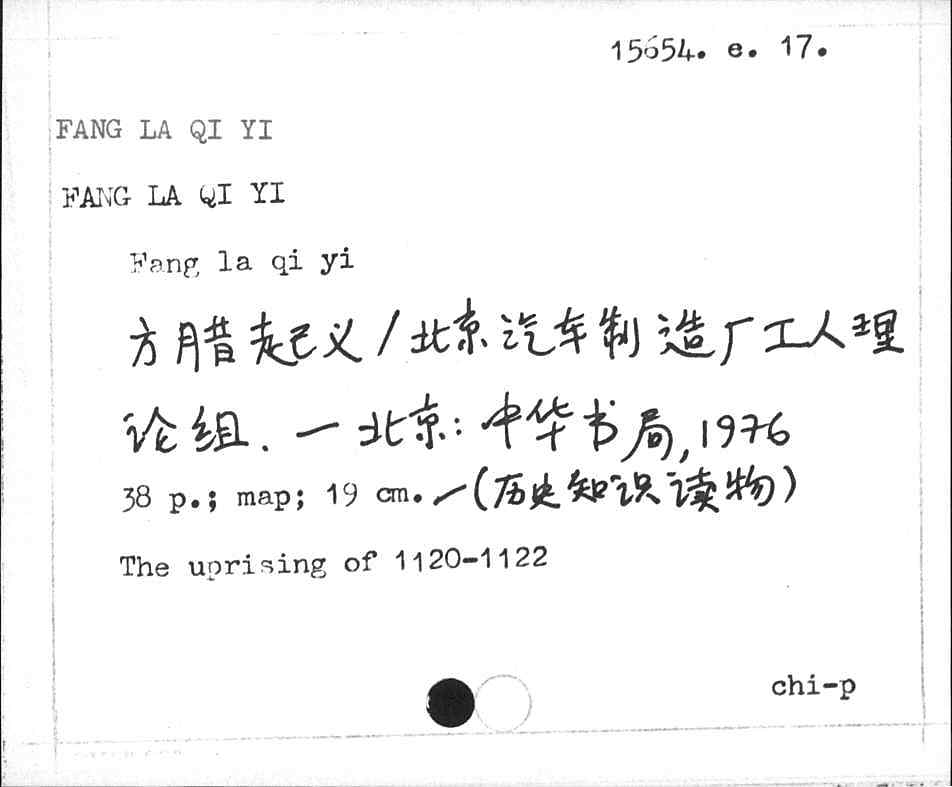 15654. e. 17.
FANG LA QI YI
FANG LA QI YI
Fang la qi yi
方腊起义/北京汽车制造厂工人理
论组. — 北京: 中华书局, 1976
38 p.; map; 19 cm. — (历史知识读物)
The uprising of 1120-1122
chi-p